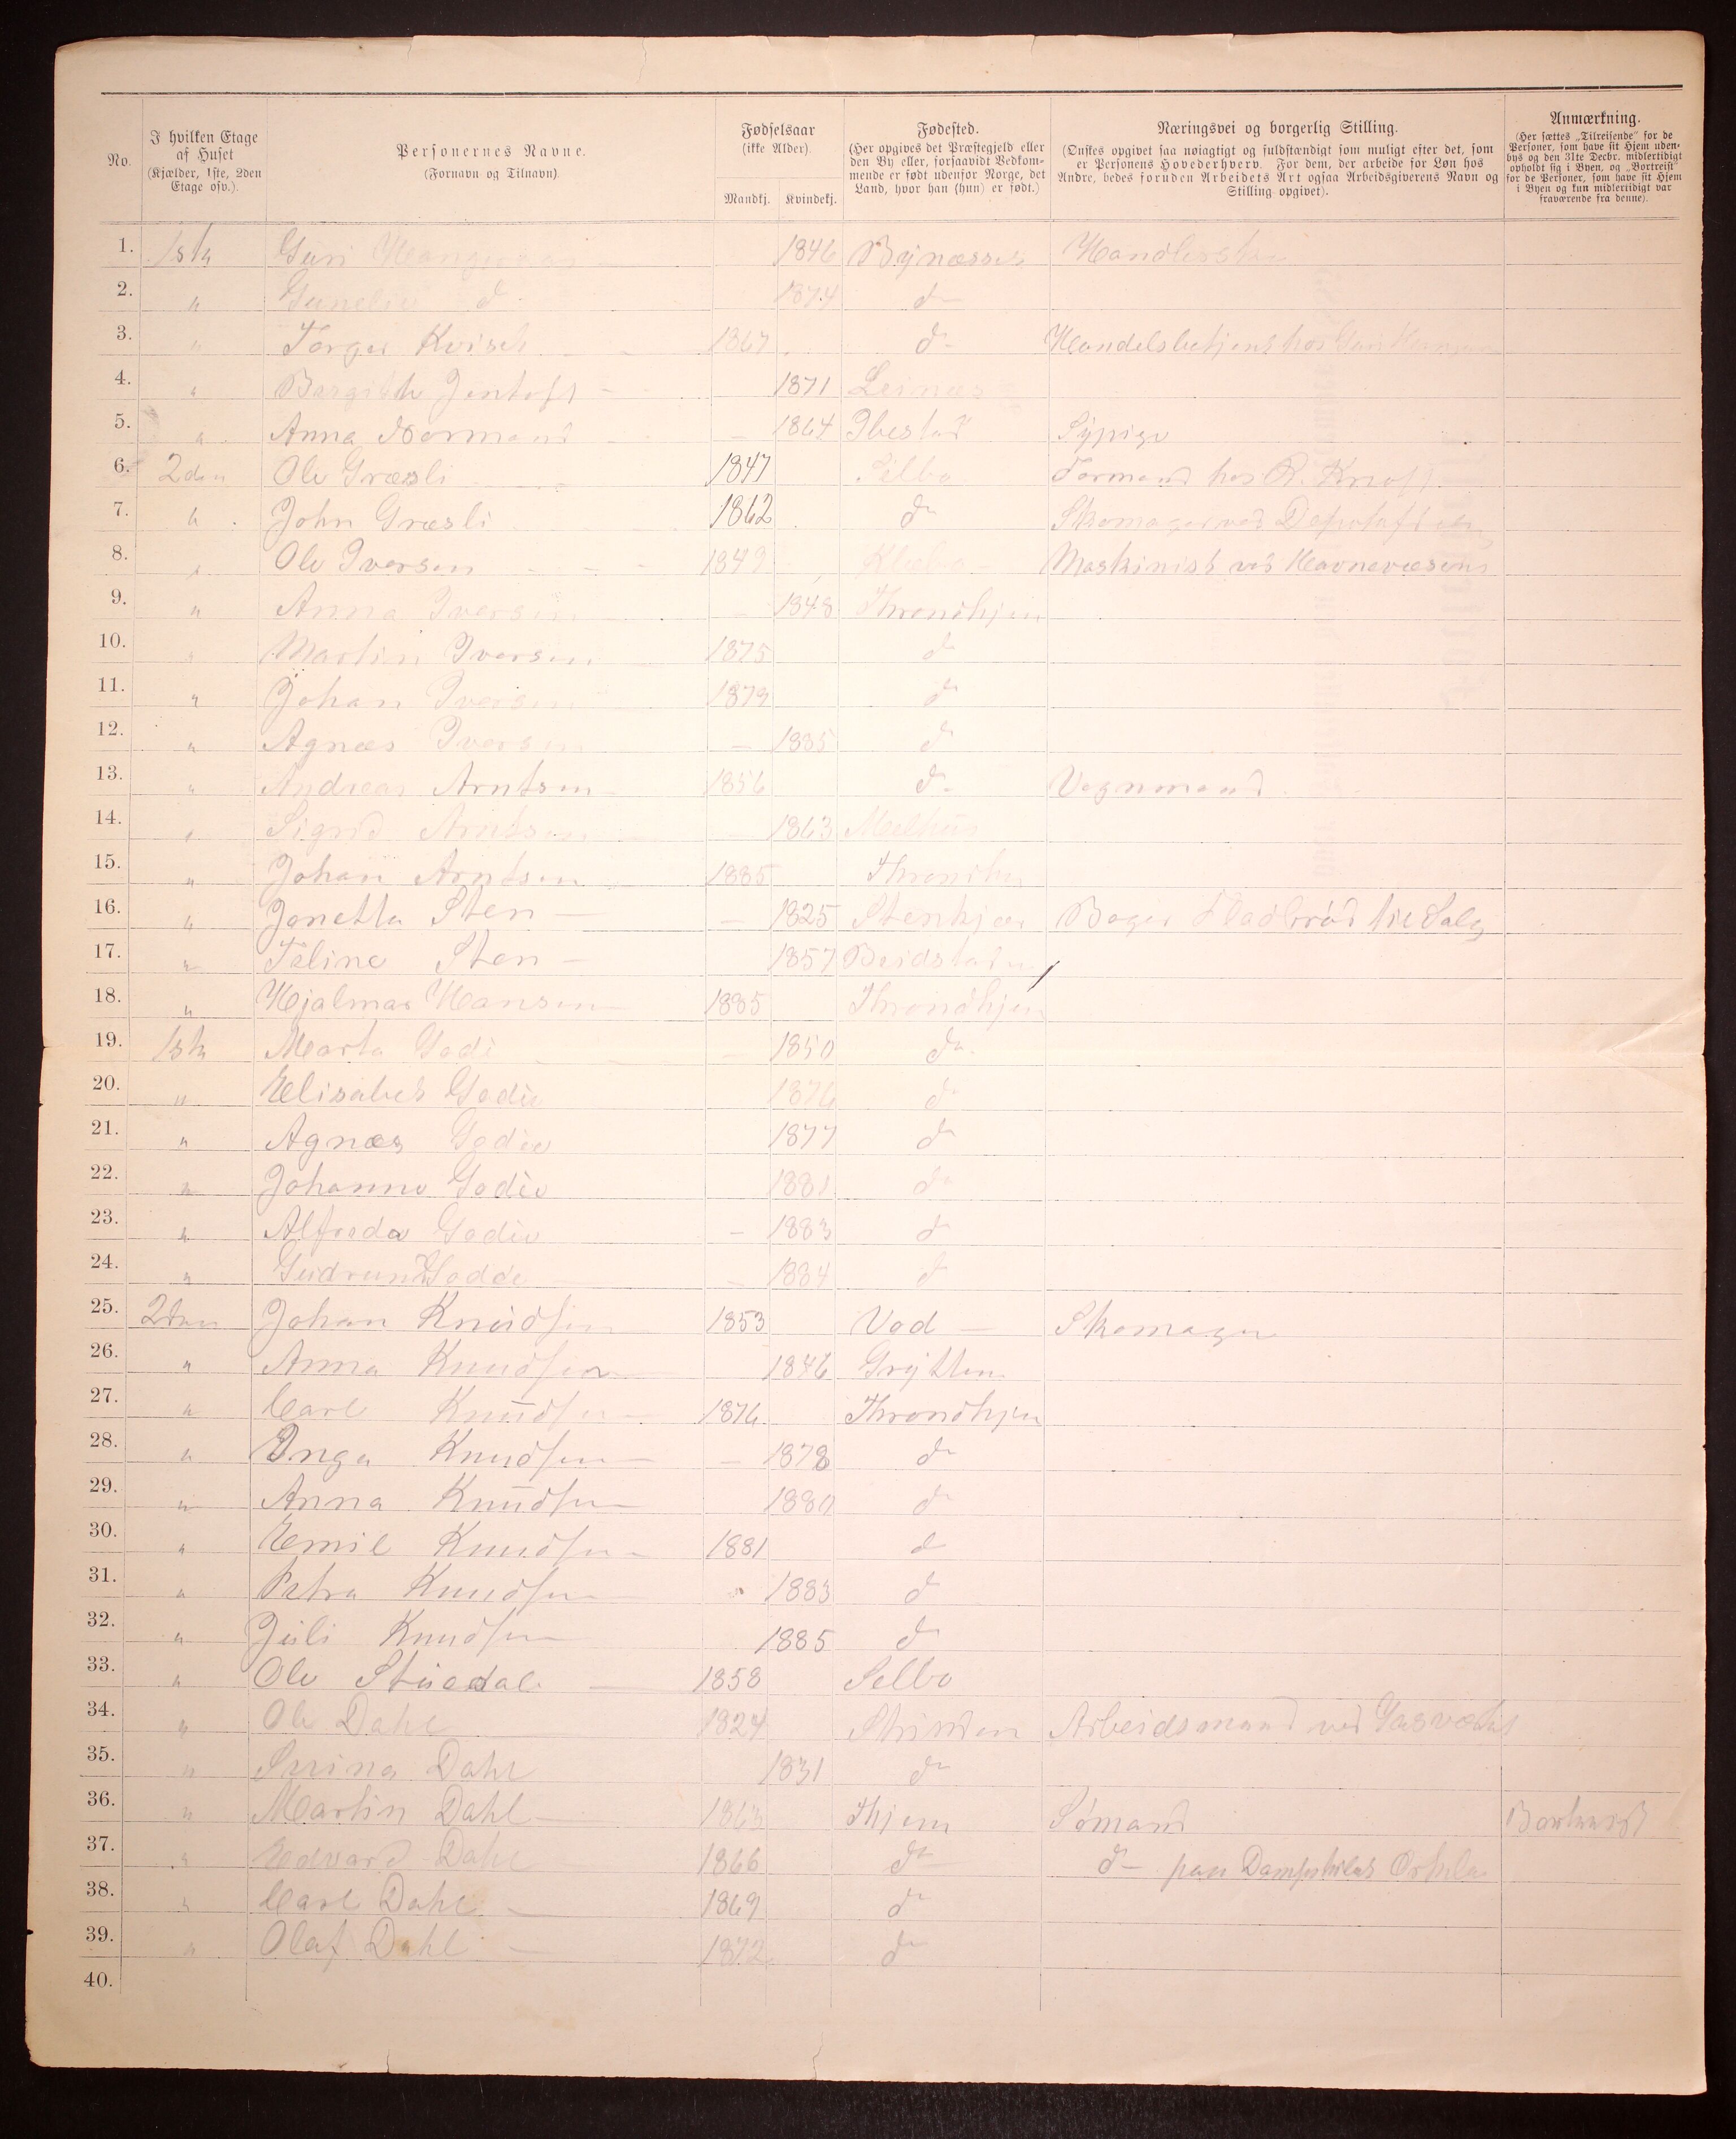 No.
I hvilken Etage af Huset (Kjælder, 1ste, 2den Etage osv.).
Personernes Navne. (Fornavn og Tilnavn).
Fødselsaar (ikke Alder). Mandkj. Kvindekj.
Fødested. (Her opgives det Præstegjeld eller den By eller, forsaavidt Vedkommende er født udenfor Norge, det Land, hvor han (hun) er født.)
Næringsvei og borgerlig Stilling. (Ønskes opgivet saa nøiagtigt og fuldstændigt som muligt efter det, som er Personens Hovederhverv. For dem, der arbeide for Løn hos Andre, bedes foruden Arbeidets Art ogsaa Arbeidsgiverens Navn og Stilling opgivet).
Anmærkning. (Her sættes „Tilreisende" for de Personer, som have sit Hjem udenbys og den 31te Decbr. midlertidigt opholdt sig i Byen, og „Bortreist" for de Personer, som have sit Hjem i Byen og kun midlertidigt var fraværende fra denne).
1. 1ste Guri 1846 Bynæsset
2. " d 1874 do
3. " Torger Kvisel 1867 do Handelsbetjent hos
4. " Bergitte Jentoft 1871 Leinæs
5. " Anna Normand 1864 Ibestad Sypige
6. 2den Ole Græsli 1847 Selbo Formand hos R. Knoff
7. " John Græsli 1862 do Skomager ved
8. " Ole Iversen 1849 Klæbo Maskinist ved Havnevæsenet
9. " Anna Iversen 1848 Throndhjem
10. " Martin Iversen 1875 do
11. " Johan Iversen 1879 do
12. " Agnæs Iversen 1885 do
13. " Andreas Arntsen 1856 do Vognmand
14. " Sigrid Arntsen 1863 Melhus
15. " Johan Arntsen 1885 Throndhjem
16. " Janetta Sten 1825 Stenkjær Bager Fladbrød til Salg
17. " Feline Sten 1857 Beidstaden
18. " Hjalmar Hansen 1885 Throndhjem
19. 1ste Marta Godè 1850 do
20. " Elisabet Godè 1876 do
21. " Agnæs Godè 1877 do
22. " Johanne Godè 1881 do
23. " Alfreda Godè 1883 do
24. " Gudrun 1884 do
25. 2den Johan Knudsen 1853 Vod Skomager
26. " Anna Knudsen 1846 Grytten
27. " Carl Knudsen 1876 Throndhjem
28. " Inga Knudsen 1878 do
29. " Anna Knudsen 1880 do
30. " Emil Knudsen 1881 do
31. " Petra Knudsen 1883 do
32. " Juli Knudsen 1885 do
33. " Ole Stuedal 1858 Selbo
34. " Ole Dahl 1824 Strinden Arbeidsmand ved Gasværket
35. " Serina Dahl 1831 do
36. " Martin Dahl 1863 Thjem Sømand Bortreist
37. " Edvard Dahl 1866 do do paa Dampskibet Orkla
38. " Carl Dahl 1869 do
39. " Olaf Dahl 1872 do
40.